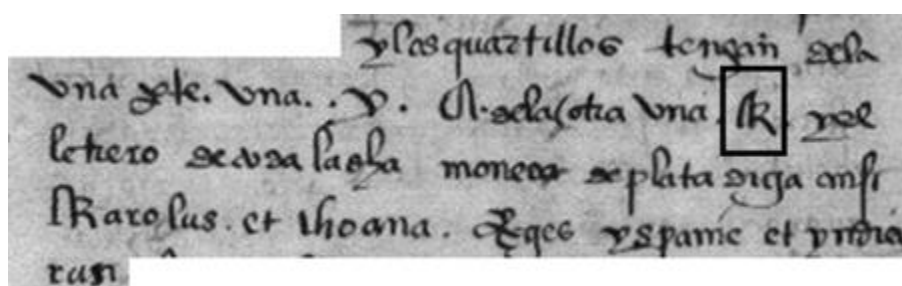 y los quartillos tengan dela
una pte. una. . y . A. dela otra una . K . y el
letrero de toda la dha moneda de plata diga ansi
Karolus . et Ihoana . Reges yspanie et yndia
run